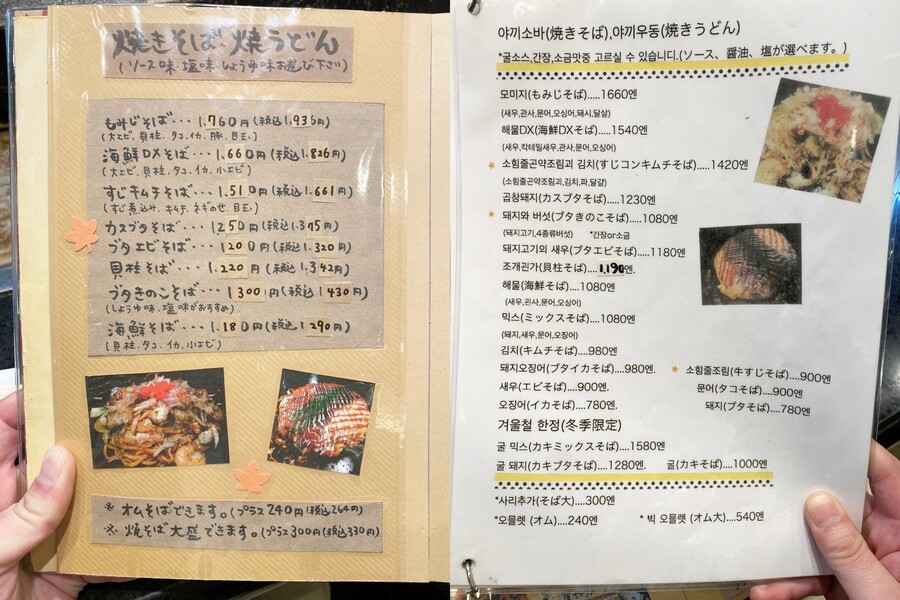 焼きそば・焼うどん
(ソース味・塩味・しょうゆ味お選び下さい)
もみじそば・・・1.760円(税込1.936円)
(大エビ、貝柱、タコ、イカ、豚、目玉)
海鮮DXそば・・・1.660円(税込1.826円)
(大エビ、貝柱、タコ、イカ、小エビ)
すじキムチそば・・・1.510円(税込1.661円)
(すじ煮込み、キムチ、ネギのせ、目玉)
カスブタそば・・・1250円(税込1.375円)
ブタエビそば・・・1200円(税込1.320円)
貝柱そば・・・1.220円(税込1.342円)
ブタきのこそば・・・1300円(税込1430円)
(しょうゆ味、塩味がおすすめ)
海鮮そば・・・1.180円(税込1290円)
(貝柱、タコ、イカ、小エビ)
※オムそばできます。(プラス240円(税込264円)
※焼そば大盛できます。(プラス300円(税込330円)
야끼소바(焼きそば),야끼우동(焼きうどん)
*굴소스,간장,소금맛중 고르실 수 있습니다.(ソース、醤油、塩が選べます。)
모미지(もみじそば).....1660엔
(새우,관사,문어,오싱어,돼시,달살)
해물DX(海鮮DXそば).....1540엔
(새우,칵테일새우,관사,문어,오싱어)
소힘줄곤약조림괴 김치(すじコンキムチそば)....1420엔
(소힘줄곤약조림,김치,파,달걀)
곱창돼지(カスブタそば)....1230엔
돼지와 버섯(ブタきのこそば)....1080엔
(돼지고기,4종류버섯) *간장or소금
돼지고기외 새우(ブタエビそば)....1180엔
조개괸가(貝柱そば)....1,190엔.
해물(海鮮そば)....1080엔
(새우,괸시,문어,오싱어)
믹스(ミックスそば)....1080엔
(돼지,새우,문어,오징어)
김치(キムチそば)....980엔
돼지오징어(ブタイカそば)....980엔.
소힘줄조림(牛すじそば)....900엔
새우(エビそば)....900엔.
문어(タコそば)....900엔
오징어(イカそば)....780엔.
돼지(ブタそば)....780엔
겨울철 한정(冬季限定)
굴 믹스(カキミックスそば)....1580엔
굴 돼지(カキブタそば)....1280엔. 굴(カキそば)....1000엔
*사리추가(そば大)....300엔
*오믈렛 (オム)....240엔 * 빅 오믈렛 (オム大)....540엔